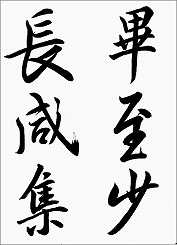 畢至少
長咸集